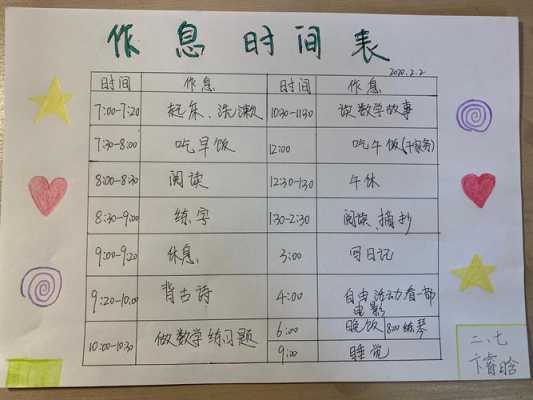 作息时间表
2020.2.2
时间 作息 时间 作息
7:00-7:20 起床、洗漱 10:30-11:30 读数学故事
7:30-8:00 吃早饭 12:00 吃午饭(干家务)
8:00-8:30 阅读 12:30-1:30 午休
8:30-9:00 练字 1:30-2:30 阅读、摘抄
9:00-9:20 休息 3:00 写日记
9:20-10:00 背古诗 4:00 自由活动看一部
电影
10:00-10:30 做数学练习题 6:00 晚饭 8:00练琴
9:00 睡觉
二、七
卞睿晗